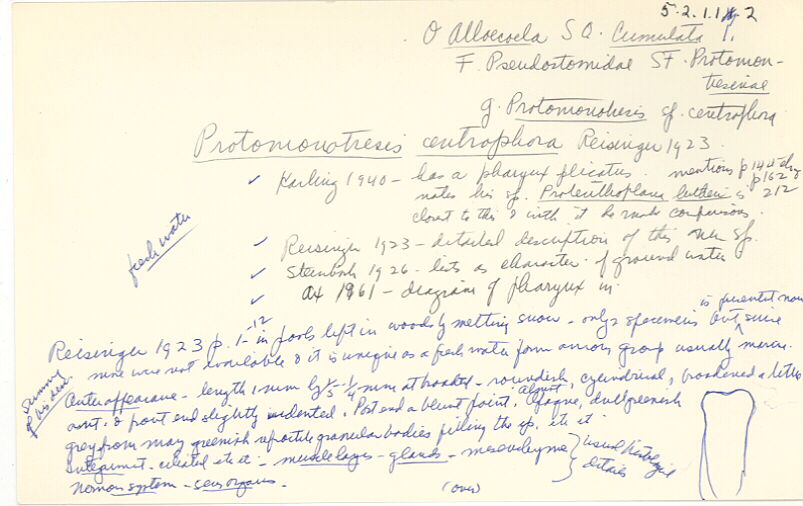 5.2.1.1 2
O Alloeocoela SO. Cumulata
F. Pseudostomidae SF. Protomon-
tresinae
g. Protomonotresis sp. centrophora
Protomonotresis centrophora Reisinger 1923.
✓ Karling 1940 – has a pharynx plicatus. mentions p 144
p 162
notes his sp. Proteinthoplana is 212
closest to this & with it he makes comparisons.
fresh water
✓ Reisinger 1923 – detailed description of this new sp.
✓ Steinböck 1926 – lists as character. of ground water
✓ Ax 1961 – diagram of pharynx in.
Reisinger 1923 p. 1-12 in pools left in woods by melting snow – only 2 specimens but since
more were not available & it is unique as a fresh water form among group usually marine.
Outer appearance – length 1 mm by 1/5-1/4 mm at broadest – roundish, cylindrical, broadened a little
ant. & post end slightly indented. Post end a blunt point. Almost opaque, dull greenish
grey from many greenish refractile granular bodies filling the sp. etc etc
Integument – ciliated etc etc – muscle layers – glands – mesenchyme usual histological
details
Nervous system – sens organs.
(over)